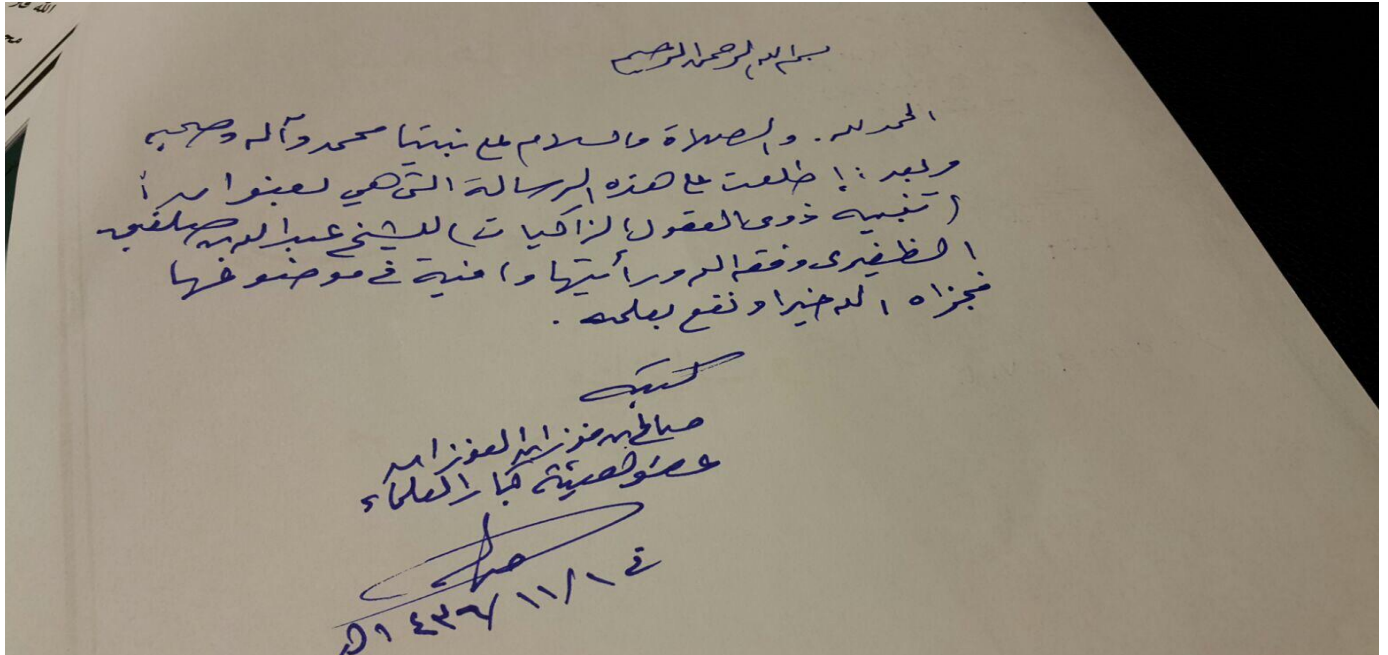 بسم الله الرحمن الرحيم
الحمد لله. والصلاة والسلام على نبينا محمد وآله وصحبه
وبعد: اطلعت على هذه الرسالة التي هي بعنوان
(تنبيه ذوي العقول الزاكيات) للشيخ عبد الله بن صلفيق
الظفيري وفقه الله ورأيتها وافية في موضوعها
فجزاه الله خيرا ونفع بعلمه.
كتبه
صالح بن فوزان الفوزان
عضو هيئة كبار العلماء
في ١١/١
١٤٣٦هـ